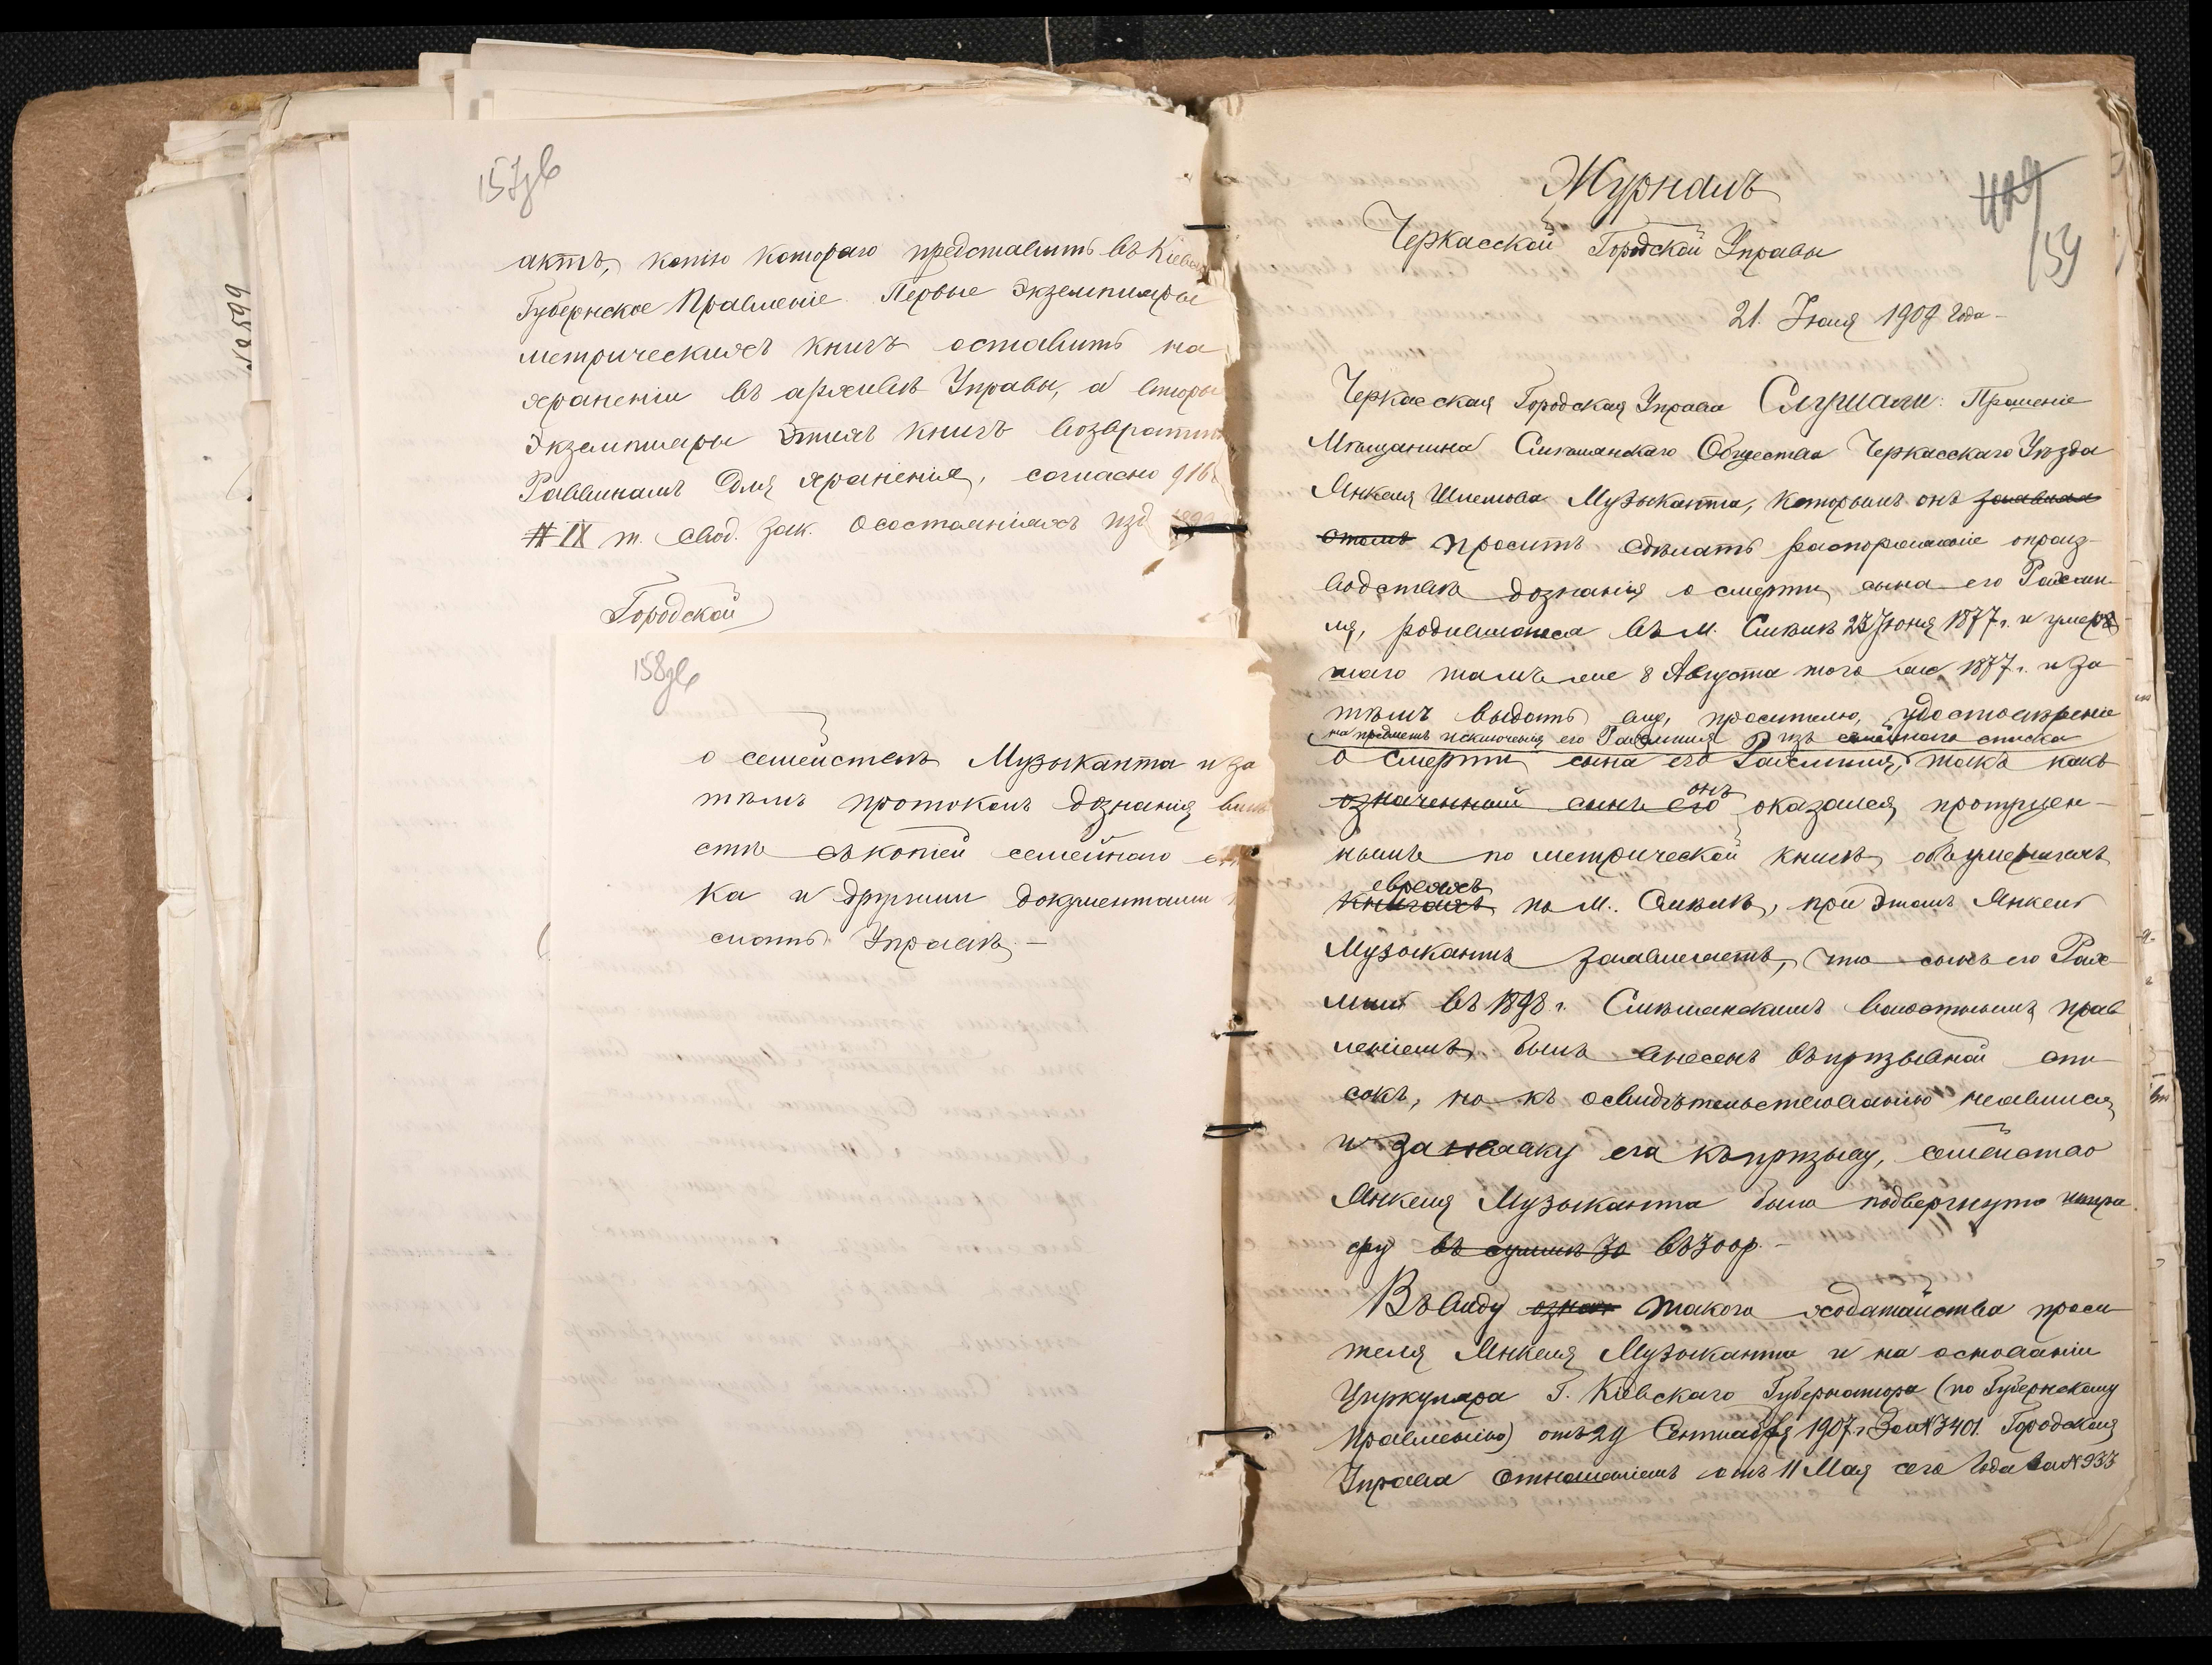 № 599
157об
актъ, копію котораго представить въ Кіевск
Губернское Правленіе. Первые Экземпляры
метрическихъ книгъ оставить на
храненіи въ архивѣ Управы, а вторы
Экземпляры этихъ книгъ возвратить
Раввинамъ для храненія, согласно 916
IX т. Свод. Зак. о состояніяхъ изд.
Городской
158об
о семействѣ Музыканта и за
тѣмъ протоколъ дознанія вмѣ
стѣ съ копіей семейнаго сп
ка и другими документами
слать Управѣ. —
Журналъ
Черкасской Городской Управы
159
21. Іюля 1909 года —
Черкасская Городская Управа Слушали: Прошеніе
Мѣщанина Смѣлянскаго Общества Черкасскаго Уѣзда
Янкеля Шлемова Музыканта, которымъ онъ заявляя
о томъ проситъ сдѣлать распоряженіе о произ-
водствѣ дознанія о смерти сына его Рахми-
ля, родившагося въ м. Смѣлѣ 23 Іюня 1877 г. и умер
шаго тамъ же 8 Августа того же 1877 г. и за
тѣмъ выдать ему, просителю, удостовѣреніе
на предметъ исключенія его Рахмиля изъ семейнаго списка
о смерти сына его Рахмиля, такъ какъ
означенный сынъ его онъ оказался пропущен-
нымъ по метрической книгѣ объ умершихъ
евреяхъ
книгахъ по м. Смѣлѣ, при этомъ Янкель
Музыкантъ заявляетъ, что сынъ его Рах
миль въ 1898 г. Смѣлянскимъ волостнымъ прав
леніемъ былъ внесенъ въ призывной спи-
сокъ, но къ освидѣтельствованію не явился
и за неявку его къ призыву, семейство
Янкеля Музыканта было подвергнуто штра
фу въ суммѣ 30 въ 300 р. —
Въ виду означ такого ходатайства проси
теля Янкеля Музыканта и на основаніи
Циркуляра Г. Кіевскаго Губернатора (по Губернскому
Правленію) отъ 29 Сентября 1907 г. за № 3401 Городская
Управа отношеніемъ отъ 11 Мая сего года за № 933